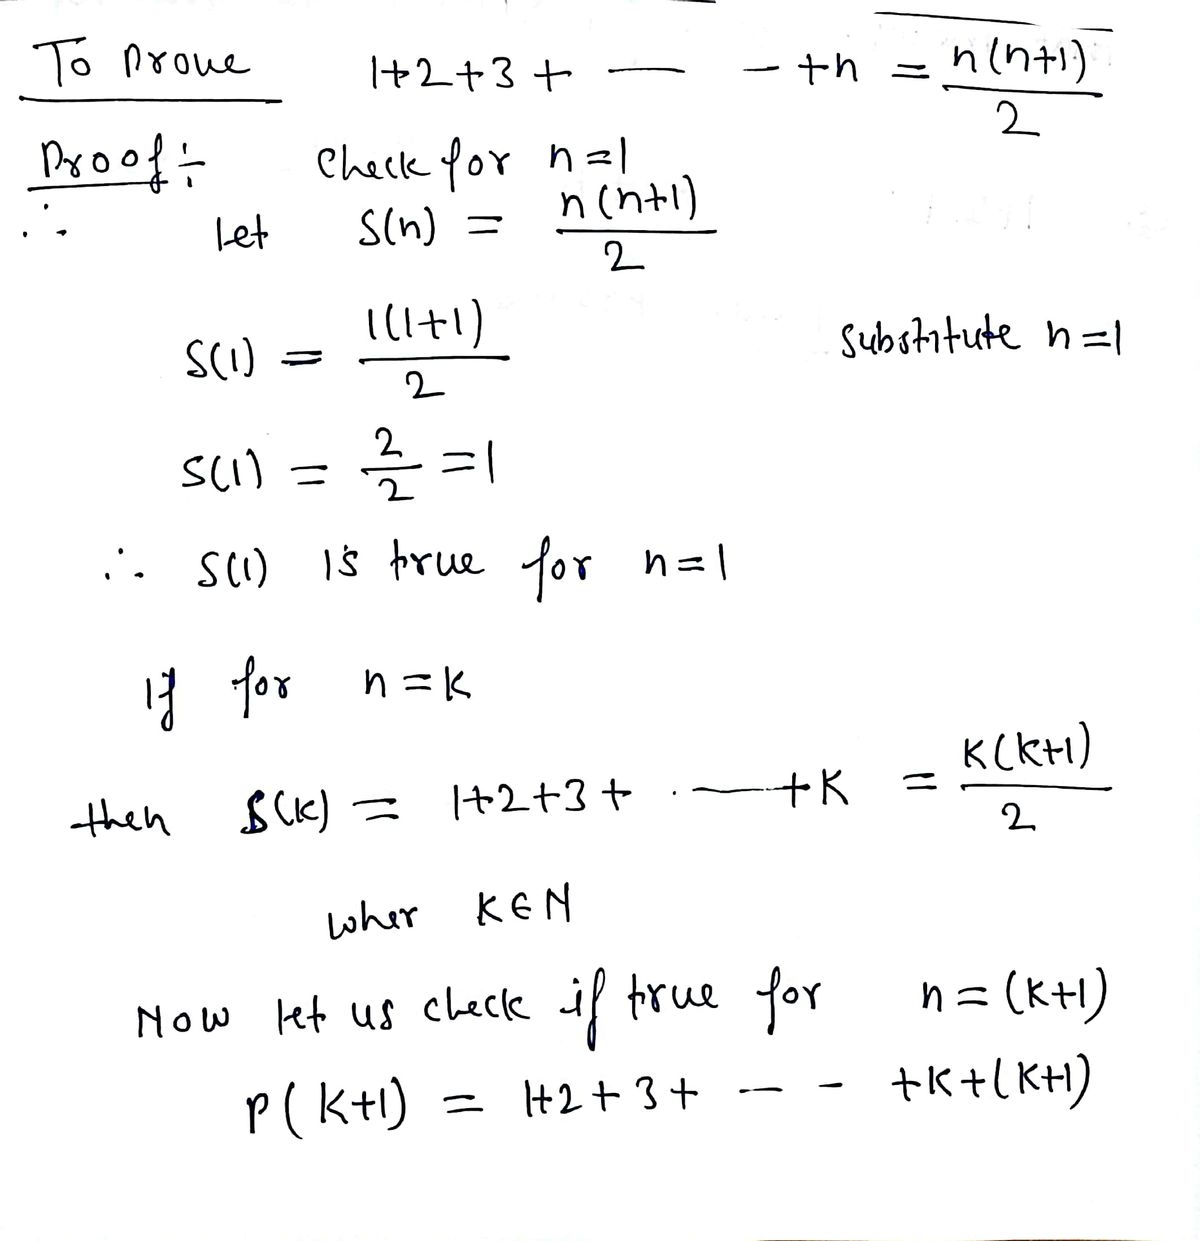 To prove 1+2+3+ — - +n = n(n+1)/2
Proof ÷ Check for n=1
∴ Let S(n) = n(n+1)/2
S(1) = 1(1+1)/2 Substitute n=1
S(1) = 2/2 =1
∴ S(1) is true for n=1
If for n=k
then S(k) = 1+2+3+ .—+K = K(k+1)/2
wher K∈N
Now let us check if true for n=(k+1)
P(k+1) = 1+2+3+ — - +K+(k+1)